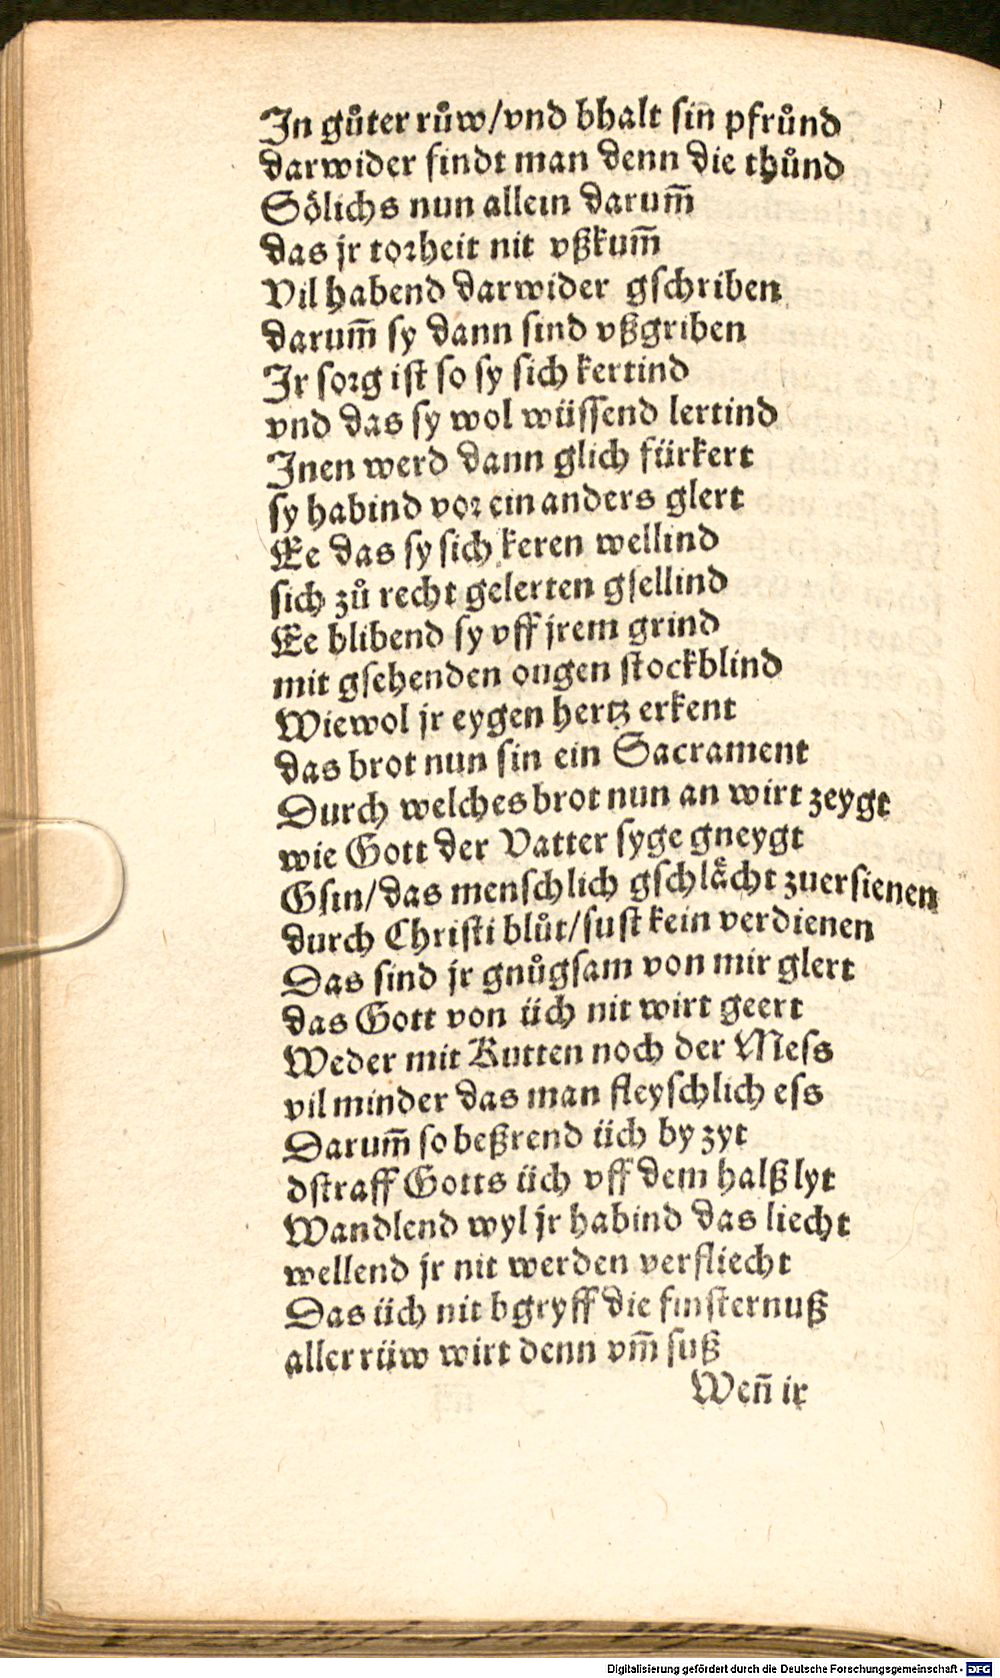 In gůter růw/vnd bhalt sin pfrůnd
darwider findt man denn die thůnd
Sölichs nun allein darum̄
das jr torheit nit vßkum̄
Vil habend darwider gschriben
darum̄ sy dann sind vßgriben
Ir sorg ist so sy sich kertind
vnd das sy wol wüssend lertind
Inen werd dann glich fürkert
sy habind vor ein anders glert
Ee das sy sich keren wellind
sich zů recht gelerten gsellind
Ee blibend sy vff jrem grind
mit gsehenden ougen stockblind
Wiewol jr eygen hertz erkent
das brot nun sin ein Sacrament
Durch welches brot nun an wirt zeygt
wie Gott der Vatter syge gneygt
Gsin/das menschlich gschlächt zuersienen
durch Christi blůt/sust kein verdienen
Das sind jr gnůgsam von mir glert
das Gott von üch nit wirt geert
Weder mit Kutten noch der Mess
vil minder das man fleyschlich ess
Darum̄ so beßrend üch by zyt
dstraff Gotts üch vff dem halß lyt
Wandlend wyl jr habind das liecht
wellend jr nit werden verfliecht
Das üch nit bgryff die finsternuß
aller rüw wirt denn vm̄ suß
Wen̄ ir
Digitalisierung gefördert durch die Deutsche Forschungsgemeinschaft - DFG